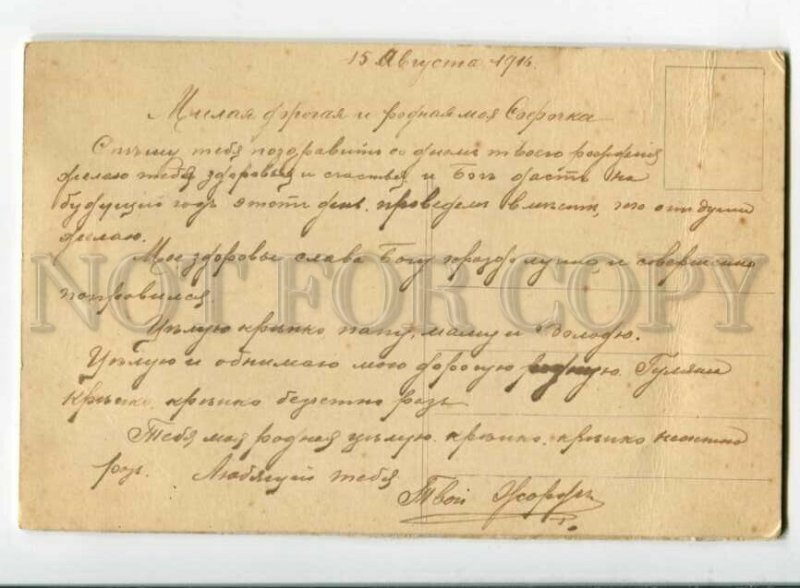 15 Августа 1916.
Милая дрогая и родная моя Серочка
Спѣшу тебя поздравить со днемъ твоего рожденія
желаю тебѣ здоровья и счастья и Богъ дастъ на
будущій годъ этотъ день проведемъ вмѣстѣ, чего отъ души
желаю.
Мое здоровье слава Богу гораздо лучше и совершенно
поправился.
Цѣлую крѣпко папу, маму и Володю.
Цѣлую и обнимаю мою дорогую родную
Крѣпко, крѣпко безсчетно разъ
Тебя моя родная цѣлую крѣпко, крѣпко несчетно
разъ. Любящій тебя
Твой Жоржъ
NOT FOR COPY